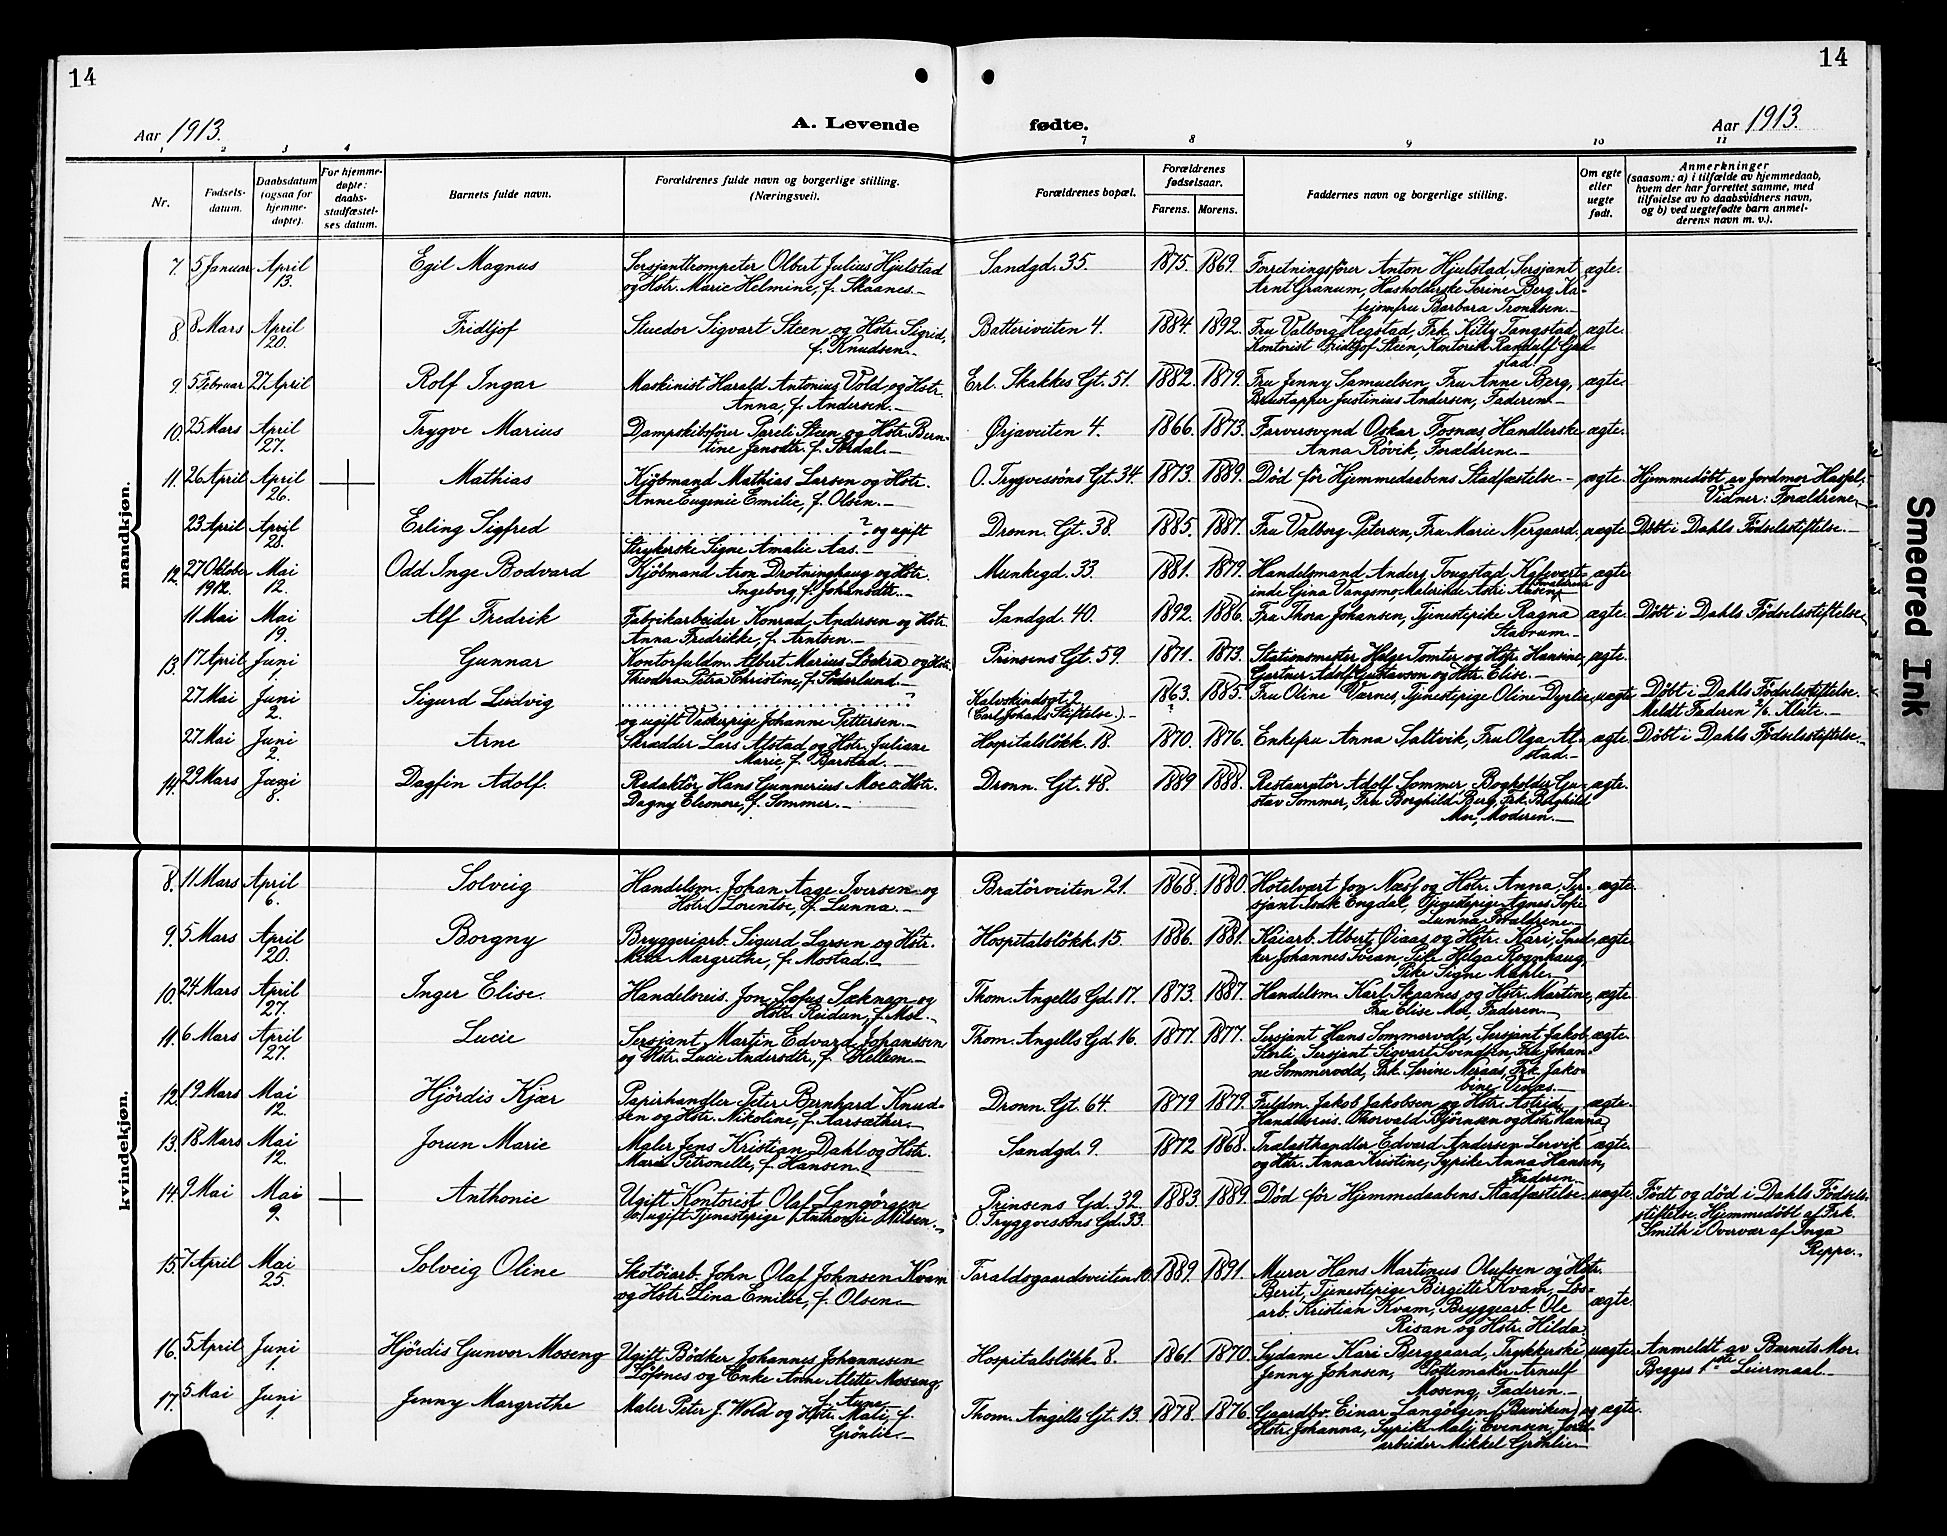 14
14
Aar 1913.
A. Levende
fødte.
Aar 1913.
1 2 3 4 7 8 9 10 11
Nr.
Fødsels-
datum.
Daabsdatum
(ogsaa for
hjemme-
døpte).
For hjemme-
døpte:
daabs-
stadfæstel-
ses datum.
Barnets fulde navn.
Forældrenes fulde navn og borgerlige stilling.
(Næringsvei).
Forældrenes bopæl.
Forældrenes
fødselsaar.
Farens. Morens.
Faddernes navn og borgerlige stilling.
Om egte
eller
uegte
født.
Anmerkninger
(saasom: a) i tilfælde av hjemmedaab,
hvem der har forrettet samme, med
tilføielse av to daabsvidners navn,
og b) ved uegtefødte barn anmel-
derens navn m. v.).
mandkjøn.
7. 5 Januar April 13. Egil Magnus Sersjanttrompeter Olbert Julius Hjulstad Sandgd. 35. 1875. 1869. Forretningsfører Anton Hjulstad, Sersjant ægte.
og Hstr. Marie Helmine, f. Skaanes. Arnt Granum, Husholderske Serine Berg, Ka-
fejomfru Barbara Trondsen.
8. 8 Mars April 20. Fridtjof Stuedor Sigvart Steen og Hstr. Sigrid, Batteriveiten 4. 1884. 1892. Fru Valborg Hegstad, Frk. Kitty Tangstad, ægte.
f. Knudsen. Kontorist Fridtjof Steen, Kontorist Randulf
stad.
9. 5 Februar 27 April Rolf Ingar Maskinist Harald Antonius Vold og Hstr. Erl. Skakkes Gt. 51. 1882. 1879. Fru Jenny Samuelsen, Fru Anne Berg, ægte.
Anna, f. Andersen. Brustapper Justinius Andersen, Faderen.
10. 25 Mars April 27. Trygve Marius Dampskibsfører Pareli Steen og Hstr. Bern- Ørjaveiten 4. 1866. 1873. Farversvend Oskar Fosnæs, Handlerske ægte.
tine Jensdtr. f. Stordal. Anna Røvik, Forældrene.
11. 26 April April 26. Mathias Kjøbmand Mathias Larsen og Hstr. O. Trygvessøns Gt. 34. 1873. 1889. Død før Hjemmedaabens Stadfæstelse. ægte. Hjemmedøbt av Jordmor Haspel.
Anne Eugenie Emilie, f. Olsen. Vidner: Forældrene.
23 April April 28. Erling Sigfred ? og ugift Dronn. Gt. 38. 1885. 1887. Fru Valborg Petersen, Fru Marie Nergaard. uægte Døbt i Dahls Fødselsstiftelse.
Strykerske Signe Amalie Aas.
12. 27 Oktober 1912. Mai 12. Odd Inge Bodvard Kjøbmand Aron Drotninghaug og Hstr. Munkegd. 33. 1881. 1879. Handelsmand Anders Tougstad, ægte.
Ingeborg, f. Johansdtr. inde Gina Vangsmo, Astri Aasen, Forældrene
11 Mai Mai 19. Alf Fredrik Fabrikarbeider Konrad Andersen og Hstr. Sandgd. 40. 1892. 1886. Fru Thora Johansen, Tjenestepike Ragna ægte. Døbt i Dahls Fødselsstiftelse.
Anna Fredrikke, f. Arntsen. Stabrum.
13. 17 April Juni 1. Gunnar Kontorfuldm. Albert Marius Løckra og Hstr. Prinsens Gt. 59. 1871. 1873. Stationsmester Helge Tomter og Hstr. Hansine, ægte.
Theodora Petra Christine, f. Söderlund. Gartner Adolf Gustavson og Hstr. Elise.
27 Mai Juni 2. Sigurd Ludvig ? Kalvskindsgt. 2 1863. ? 1885. Fru Oline Værnes, Tjenestepige Oline Dyrlie, uægte Døbt i Dahls Fødselsstiftelse.
og ugift Veverpige Johanne Pettersen. (Carl Johans Stiftelse.) Meldt Faderen 2/6. Klute.
27 Mai Juni 2. Arne Skrædder Lars Alstad og Hstr. Juliane Hospitalsløkk. 18. 1870. 1876. Enkefru Anna Saltvik, Fru Olga Al- ægte. Døbt i Dahls Fødselsstiftelse.
Marie, f. Barstad. stad.
14. 29 Mars Juni 8. Dagfin Adolf. Redaktør Hans Gunnerius Moe o. Hstr. Dronn. Gt. 48. 1889 1888. Restauratør Adolf Sommer, Bogholder Gu- ægte.
Dagny Eleonore, f. Sommer. stav Sommer, Fru Borghild Berg, Frk. Borghild
Moe, Moderen.
kvindekjøn.
8. 11 Mars April 6. Solveig Handelsm. Johan Aage Iversen og Bratørveiten 21. 1868. 1880. Hotelvært Jon Næss og Hstr. Anna, Ser- ægte
Hstr. Lorentse, f. Lunna. sjant Isak Engdal, Tjenestepige Agnes Sofie
Lunna, Forældrene.
9. 5 Mars April 20. Borgny Bryggeriarb. Sigurd Larsen og Hstr. Hospitalsløkk. 15. 1886. 1881. Kaiarb. Albert Øiaas og Hstr. Kari, Sned- ægte
Margrethe, f. Mostad. ker Johannes Svean, Pike Helga Rognhaug,
Pike Signe Mæhle.
10. 24 Mars April 27. Inger Elise. Handelsreis. Jon Sofus Sæknan og Thom. Angells Gd. 17. 1873. 1887. Handelsm. Karl Skaanes og Hstr. Martine, ægte
Hstr. Reidun, f. Moe. Fru Elise Moe, Faderen.
11. 6 Mars April 27. Lucie Sersjant Martin Edvard Johanssen Thom. Angells Gd. 16. 1877. 1877. Sersjant Hans Sommervold, Sersjant Jakob ægte.
og Hstr. Lucie Andersdtr., f. Hellem. Storli, Sersjant Sigvart Svendsen, Fru Johan-
ne Sommervold, Frk. Serine Neraas, Frk. Jako-
bine Venæs.
12. 19 Mars Mai 12. Hjördis Kjær Papirhandler Peter Bernhard Knud- Dronn. Gt. 64. 1879 1879. Fuldm. Jakob Jakobsen og Hstr. Astrid, ægte.
sen og Hstr. Nikoline, f. Aarsæther. Handelsreis. Thorvald Bjørnsen og Hstr. Hanna
13. 18 Mars Mai 12. Jorun Marie Maler Jens Kristian Dahl og Hstr. Sandgd. 9. 1872 1868. Trælasthandler Edvard Andersen Lervik ægte.
Marie Petronelle, f. Hansen. og Hstr. Anna Kristine, Sypike Anna Hansen,
Faderen.
14. 9 Mai Mai 9. Anthonie Ugift Kontorist Olaf Langørgen Prinsens Gd. 32. 1883. 1889. Død før Hjemmedaabens Stadfæstelse. uægte. Født og død i Dahls Fødsels-
og ugift Tjenestepige Anthonie Nilsen. O. Tryggvessøns Gd. 33. stiftelse. Hjemmedøbt af Frk.
Smith i Overvær af Inga
Reppe.
15. 7 April Mai 25. Solveig Oline Skotøiarb. John Olaf Johnsen Kvam Taraldsgaardsveiten 10. 1889. 1891. Murer Hans Martinus Olufsen og Hstr.
og Hstr. Lina Emilie, f. Olsen. Berit, Tjenestepige Birgitte Kvam, Løs- ægte.
arb. Kristian Kvam, Bryggearb. Ole
Risan og Hstr. Hilda.
16. 5 April Juni 1. Hjördis Gunvor Moseng Ugift Bødker Johannes Johannesen Hospitalsløkk. 8. 1861. 1870. Sydame Kari Berggaard, Trykkerske uægte. Anmeldt av Barnets Mor.
Løfsnes og Enke Anne Alette Moseng, Jenny Johnsen, Pottemaker Arnulf Begges 1ste Leiermaal.
f. Aune. Moseng, Faderen.
17. 5 Mai Juni 1. Jenny Margrethe Maler Peter J. Wold og Hstr. Mali, f. Thom. Angells Gt. 13. 1878. 1876. Gaardbr. Einar Langørgen (Buviken) og ægte.
Grønlie. Hstr. Johanna, Sypike Mali Evensen, Jord-
arbeider Mikkel Grønlie.
Smeared Ink